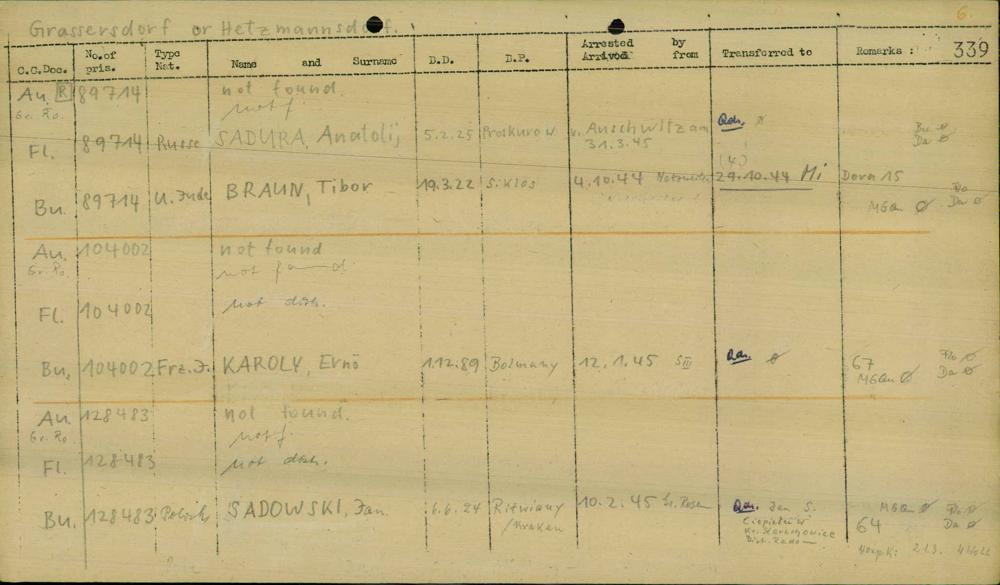 Grassersdorf or Hetzmannsdorf. 6.
C.C.Doc. No.of pris. Type Nat. Name and Surname D.D. D.P. Arrested Arrived by from Transferred to Remarks : 339
Au. R 89714 not found.
Gr. Ro. not f
Fl. 89714 Russe SADURA, Anatolij 5.2.25 Proskurow v. Auschwitz am 31.3.45 Bu Ø Da Ø
Bu. 89714 U. Jude BRAUN, Tibor 19.3.22 Siklos 4.10.44 (4.) 29.10.44 Mi Dora 15
Flo Da Ø
Au. 104002 not found
Gr. Ro. not found
Fl. 104002 not dish.
Bu. 104002 Frz.J. KAROLY, Ernö 1.12.89 Bolmany 12.1.45 SIII Ø 67 Flo Ø Da Ø
Au. 128483 not found.
Gr. Ro. not f.
Fl. 128483 not dish.
Bu. 128483 Polisch SADOWSKI, Jan 6.6.24 Ritwiany /Krakau 10.2.45 Gr. Rosen Jan S. 64 Da Ø